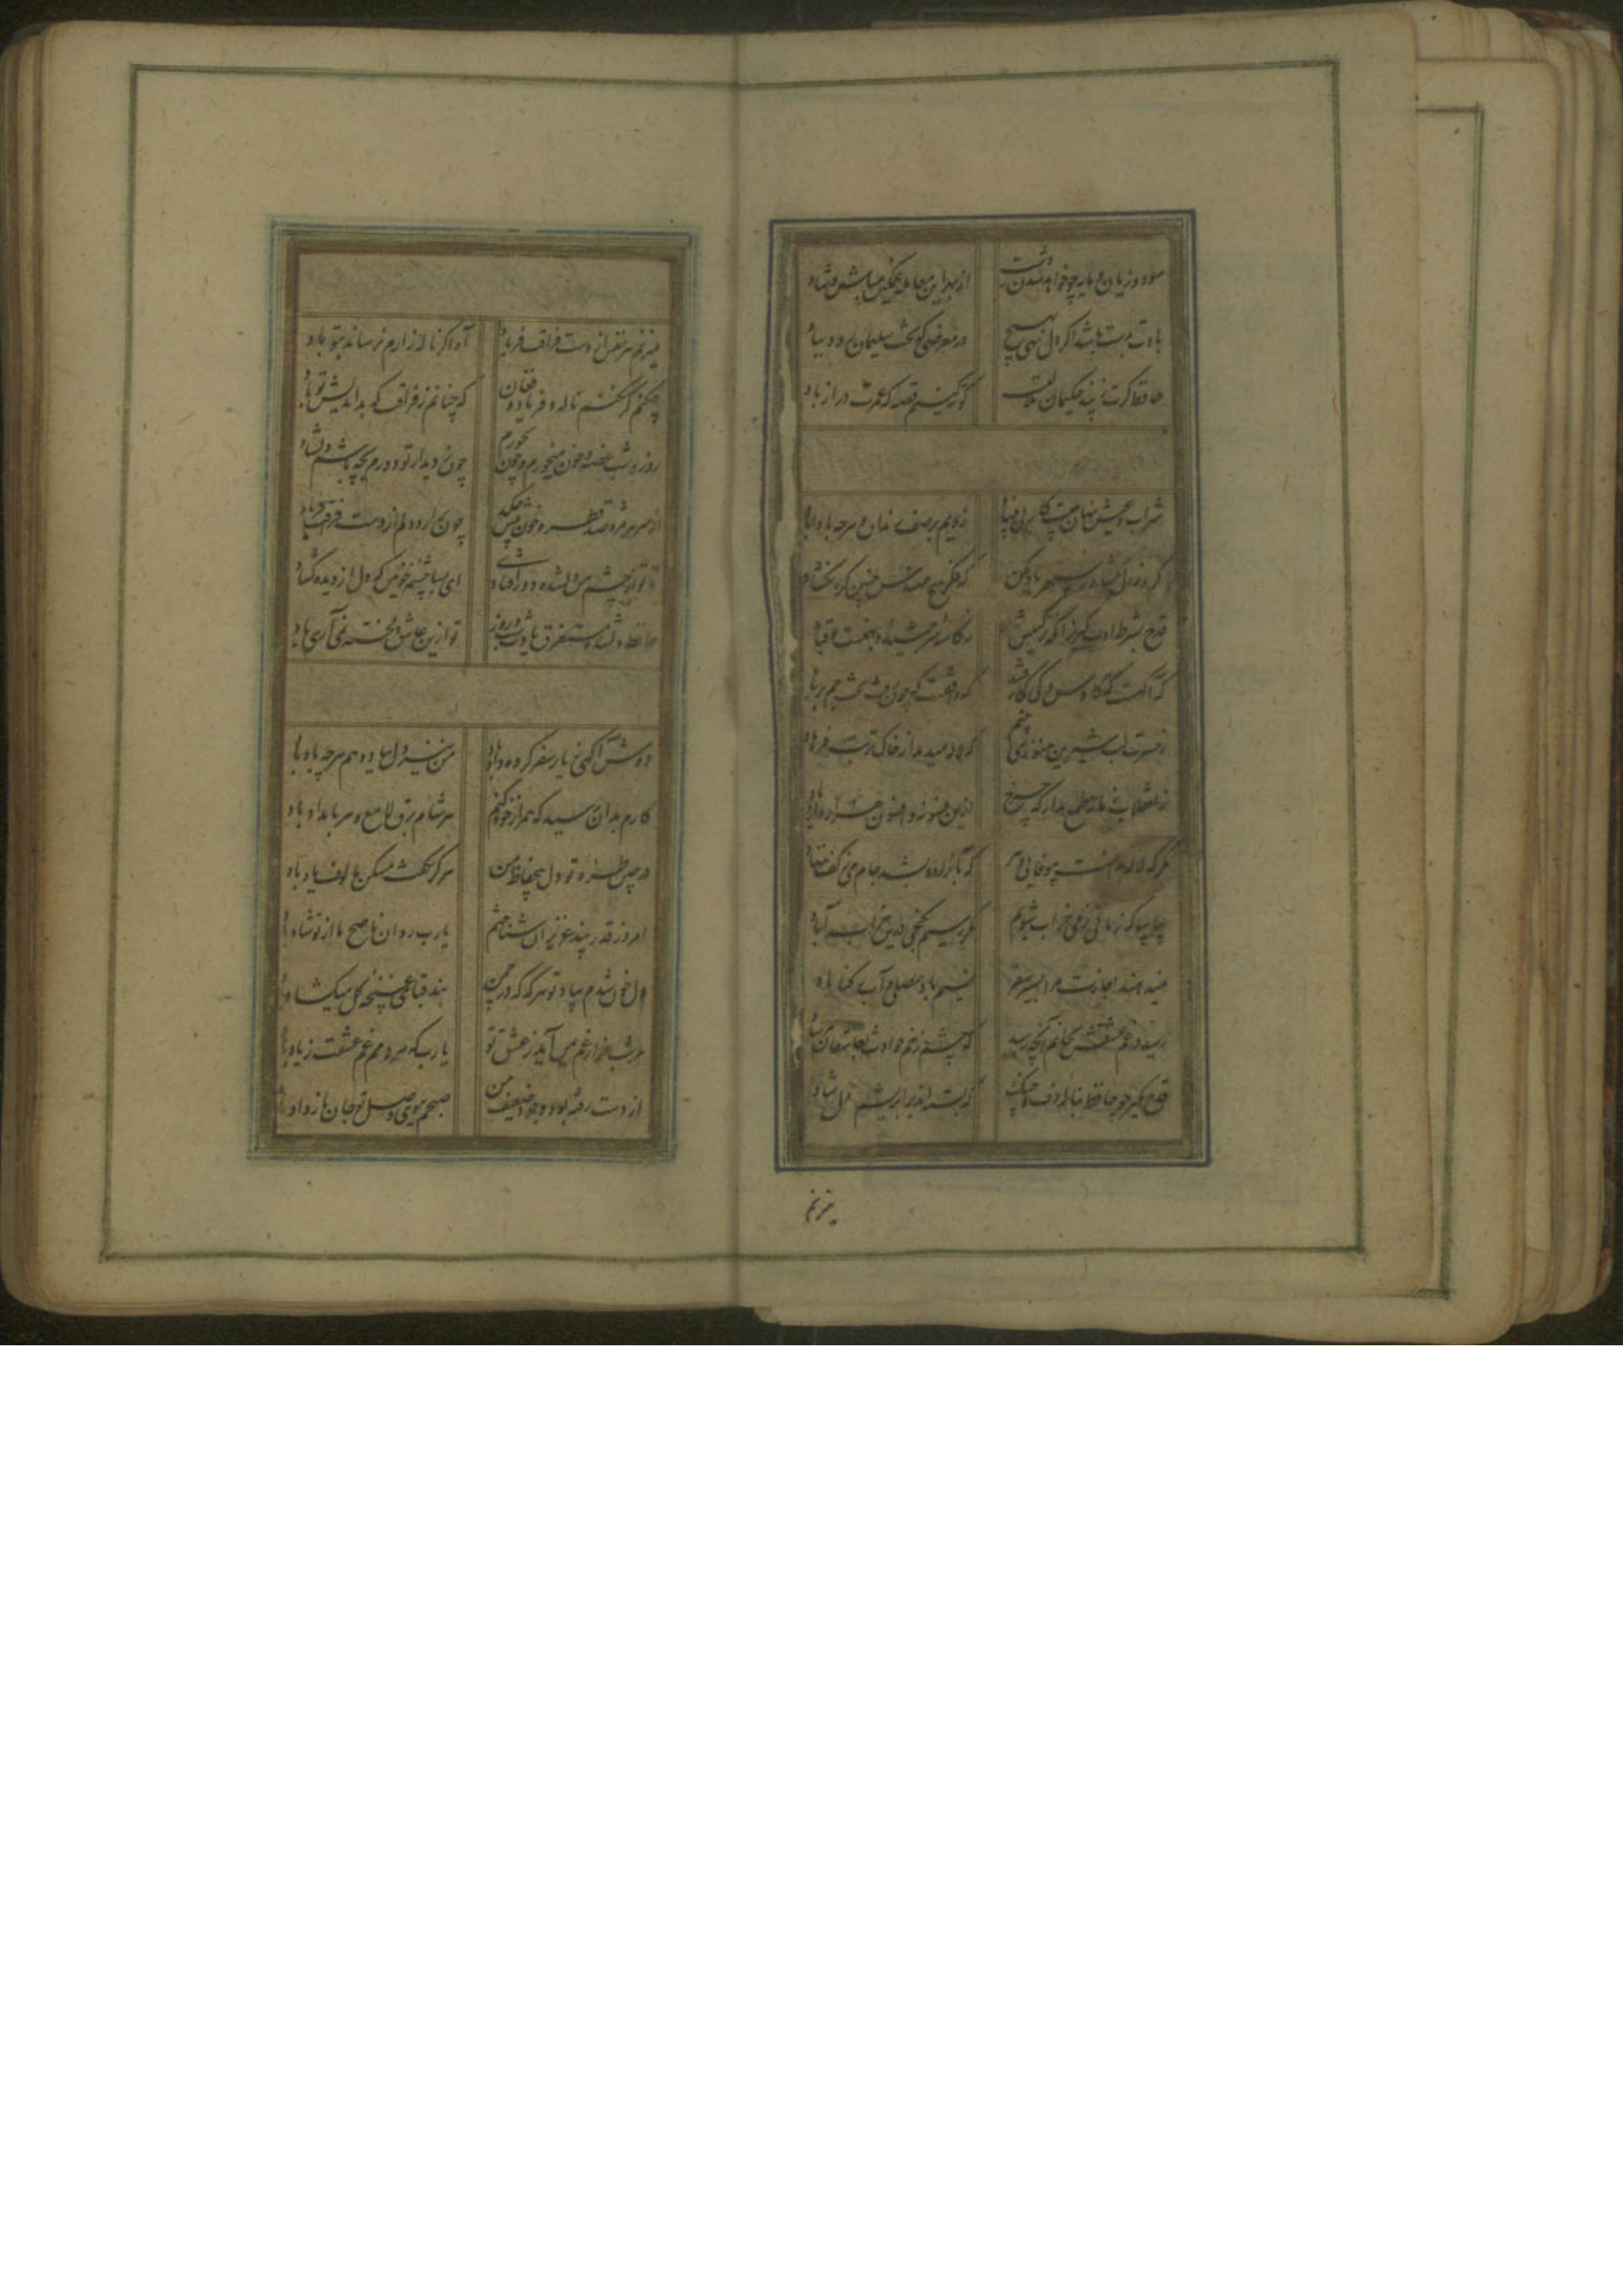 سود و زیان و مایه چو خواهد شدن ز دست از بهر این معامله غمگین مباش و شاد
بادت بدست باشد اگر دل نهی بهیچ در معرضی که تخت سلیمان رود بباد
حافظ گرت ز پند حکیمان ملالتست کوته کنیم قصه که عمرت دراز باد
شراب و عیش نهان چیست کار بی بنیاد زدیم بر صف رندان و هر چه بادا باد
گره ز دل بگشا و ز سپهر یاد مکن که فکر هیچ مهندس چنین گره نگشاد
قدح بشرط ادب گیر زانکه ترکیبش ز کاسه سر جمشید و بهمنست و قباد
که آگهست که کاوس و کی کجا رفتند که واقفست که چون رفت تخت جم بر باد
ز حسرت لب شیرین هنوز می بینم که لاله میدمد از خاک تربت فرهاد
ز انقلاب زمانه طمع مدار که چرخ ازین فسانه و افسون هزار دارد یاد
مگر که لاله بدانست بیوفایی دهر که تا بزاد و بشد جام می ز کف ننهاد
بیا بیا که زمانی ز می خراب شویم مگر رسیم بگنجی درین خراب آباد
نمیدهند اجازت مرا بسیر سفر نسیم باد مصلی و آب رکناباد
رسید در غم عشقش بجانم آنچه رسید که چشم زخم حوادث بعاشقان مرساد
قدح مگیر چو حافظ بناله دف و چنگ که بسته اند بر ابریشم دل شاد
میزنم
میزنم هر نفس از دست فراقت فریاد آه اگر ناله زارم نرساند بتو باد
چکنم گر نکنم ناله و فریاد و فغان که چنانم ز فراقت که بداندیش تو باد
روز و شب غصه و خون میخورم و چون نخورم چون ز دیدار تو دورم بچه باشم دلشاد
از سر هر مژه صد قطره خون بیش چکد چون برآرد دلم از دست فراقت فریاد
تا تو از چشم من دلشده دور افتادی ای بسا چشمه خونین که دل از دیده گشاد
حافظ دلشده مستغرق یادت شب و روز تو ازین عاشق دلخسته نمی آری یاد
دوش آگهی ز یار سفر کرده داد باد من نیز دل بباد دهم هر چه باد باد
کارم بدان رسید که همراز خود کنم هر شام برق لامع و هر بامداد باد
در چین طره تو دل بیحفاظ من هرگز نگفت مسکن مالوف یاد باد
امروز قدر پند عزیزان شناختم یارب روان ناصح ما از تو شاد باد
دل خون شدم بیاد تو هر گه که در چمن بند قبای غنچه گل میگشاد باد
هر شب هزار غم بمن آید ز عشق تو یارب که هر دمم غم عشقت زیاد باد
از دست رفته بود وجود ضعیف من صبحم ببوی وصل تو جان باز داد باد